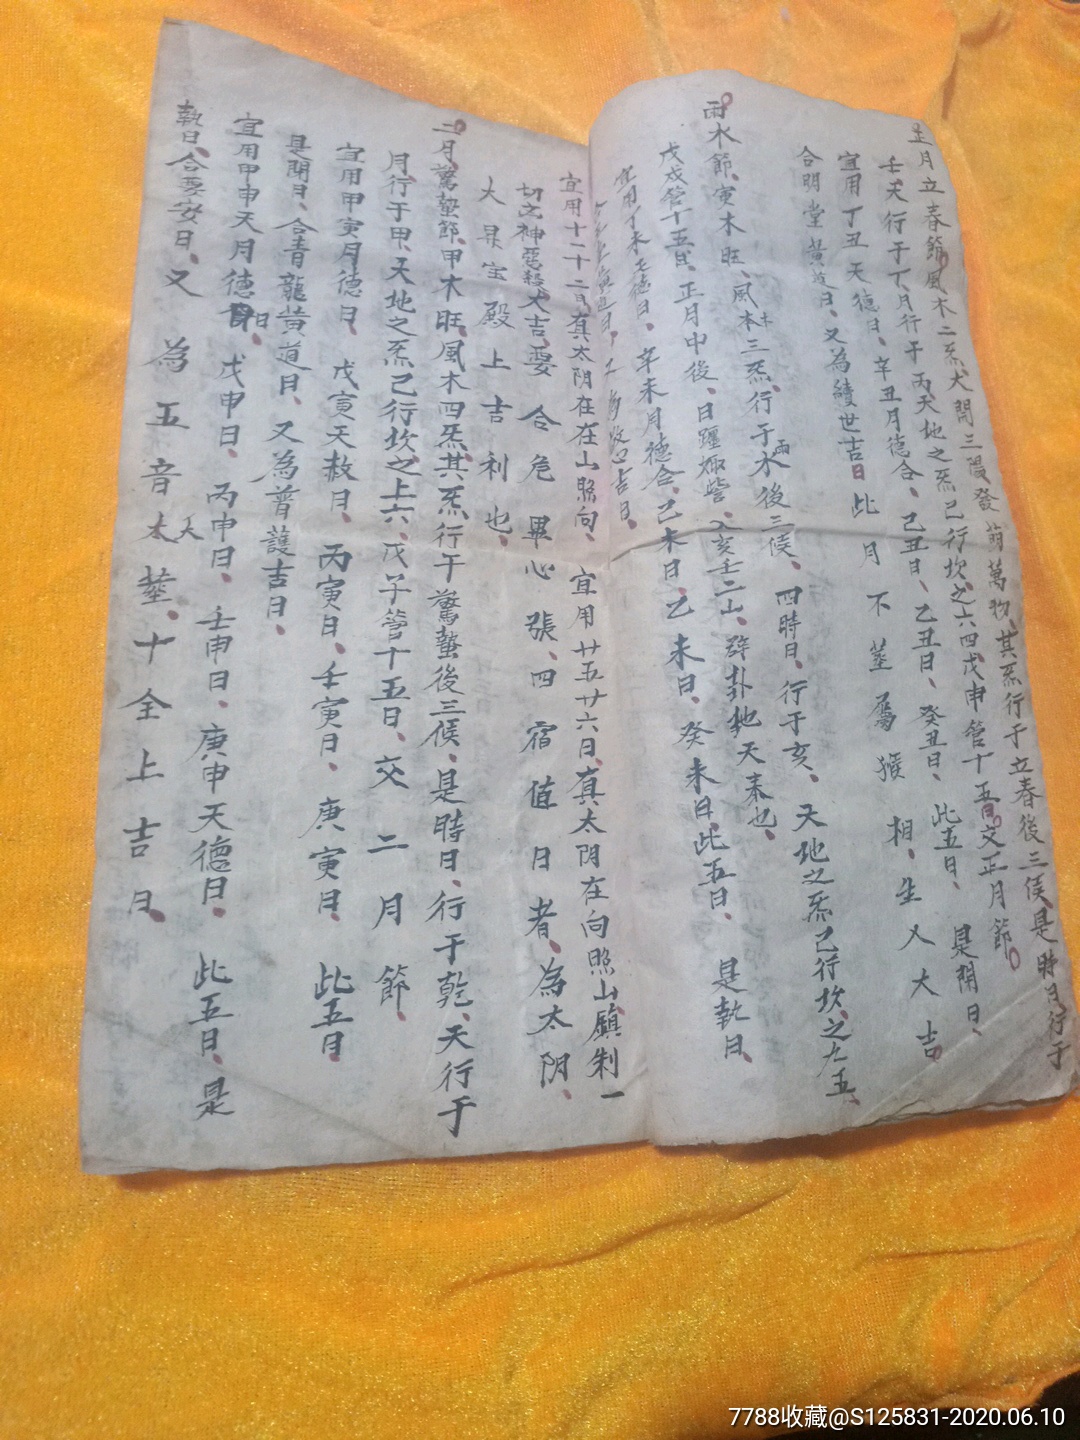 正月立春節風木二炁大開三陽發萌萬物其炁行于立春後三候是時日行于
壬天行于丁月行于丙天地之炁已行坎之六四戊申管十五日交正月節
宜用丁丑天德日辛丑月德合己丑日乙丑日癸丑日此五日是開日
合明堂黃道日又為續世吉日此月不葬屬猴相生人大吉
雨水節寅木旺風木三炁行于雨水後三候四時日行于亥天地之炁已行坎之九五
戊戌管十五日正月中後日躔娵訾入亥壬二山辟卦地天泰也
宜用丁未天德日辛未月德合己未日乙未日癸未日此五日是執日
吉日
宜用十一十二日真太陰在在山照向宜用廿五廿六日真太陰在向照山鎮制一
切之神惡殺大吉要合危畢心張四宿值日者為太陰
大昇宝殿上吉利也
二月驚蟄節甲木旺風木四炁其炁行于驚蟄後三候是時日行于乾天行于
月行于甲天地之炁已行坎之上六戊子管十五日交二月節
宜用甲寅月德日戊寅天赦日丙寅日壬寅日庚寅日此五日
是開日合青龍黃道日又為普護吉日
宜用甲申天月德日戊申日丙申日壬申日庚申天德日此五日是
執日合要安日又為五音大葬十全上吉日
7788收藏@S125831-2020.06.10